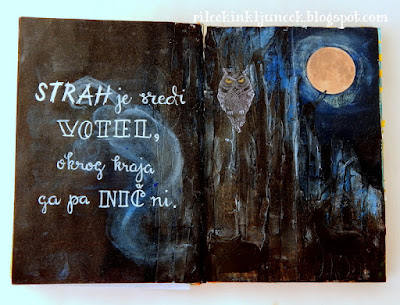 rilecinkljuncek.blogspot.com
STRAH je sredi
VOTEL,
okrog kraja
ga pa NIČ ni.